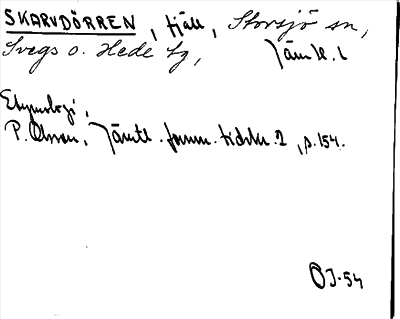 SKARVDÖRREN, fjäll, Storsjö sn,
Svegs o. Hede tg, Jämtl. l
Etymologi,
P. Olsson, Jämtl. fornm. tidskr. 2, s. 154.
ÖJ-54